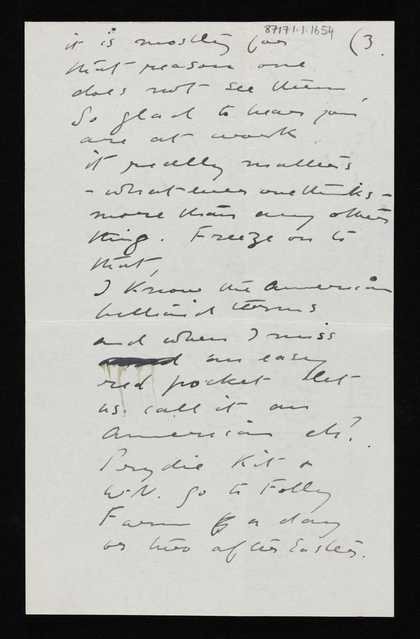 8717.1.1.1654
it is mostly for (3.
that reason one
does not see them
So glad to hear you
are at work
it really matters
- what ever one thinks -
more than any other
thing. Freeze on to
that,
I know the American
billiard terms
and when I miss
an easy
red pocket let
us call it an
American eh?
Prydie Kit &
W.N. go to Folly
Farm for a day
or two after Easter.